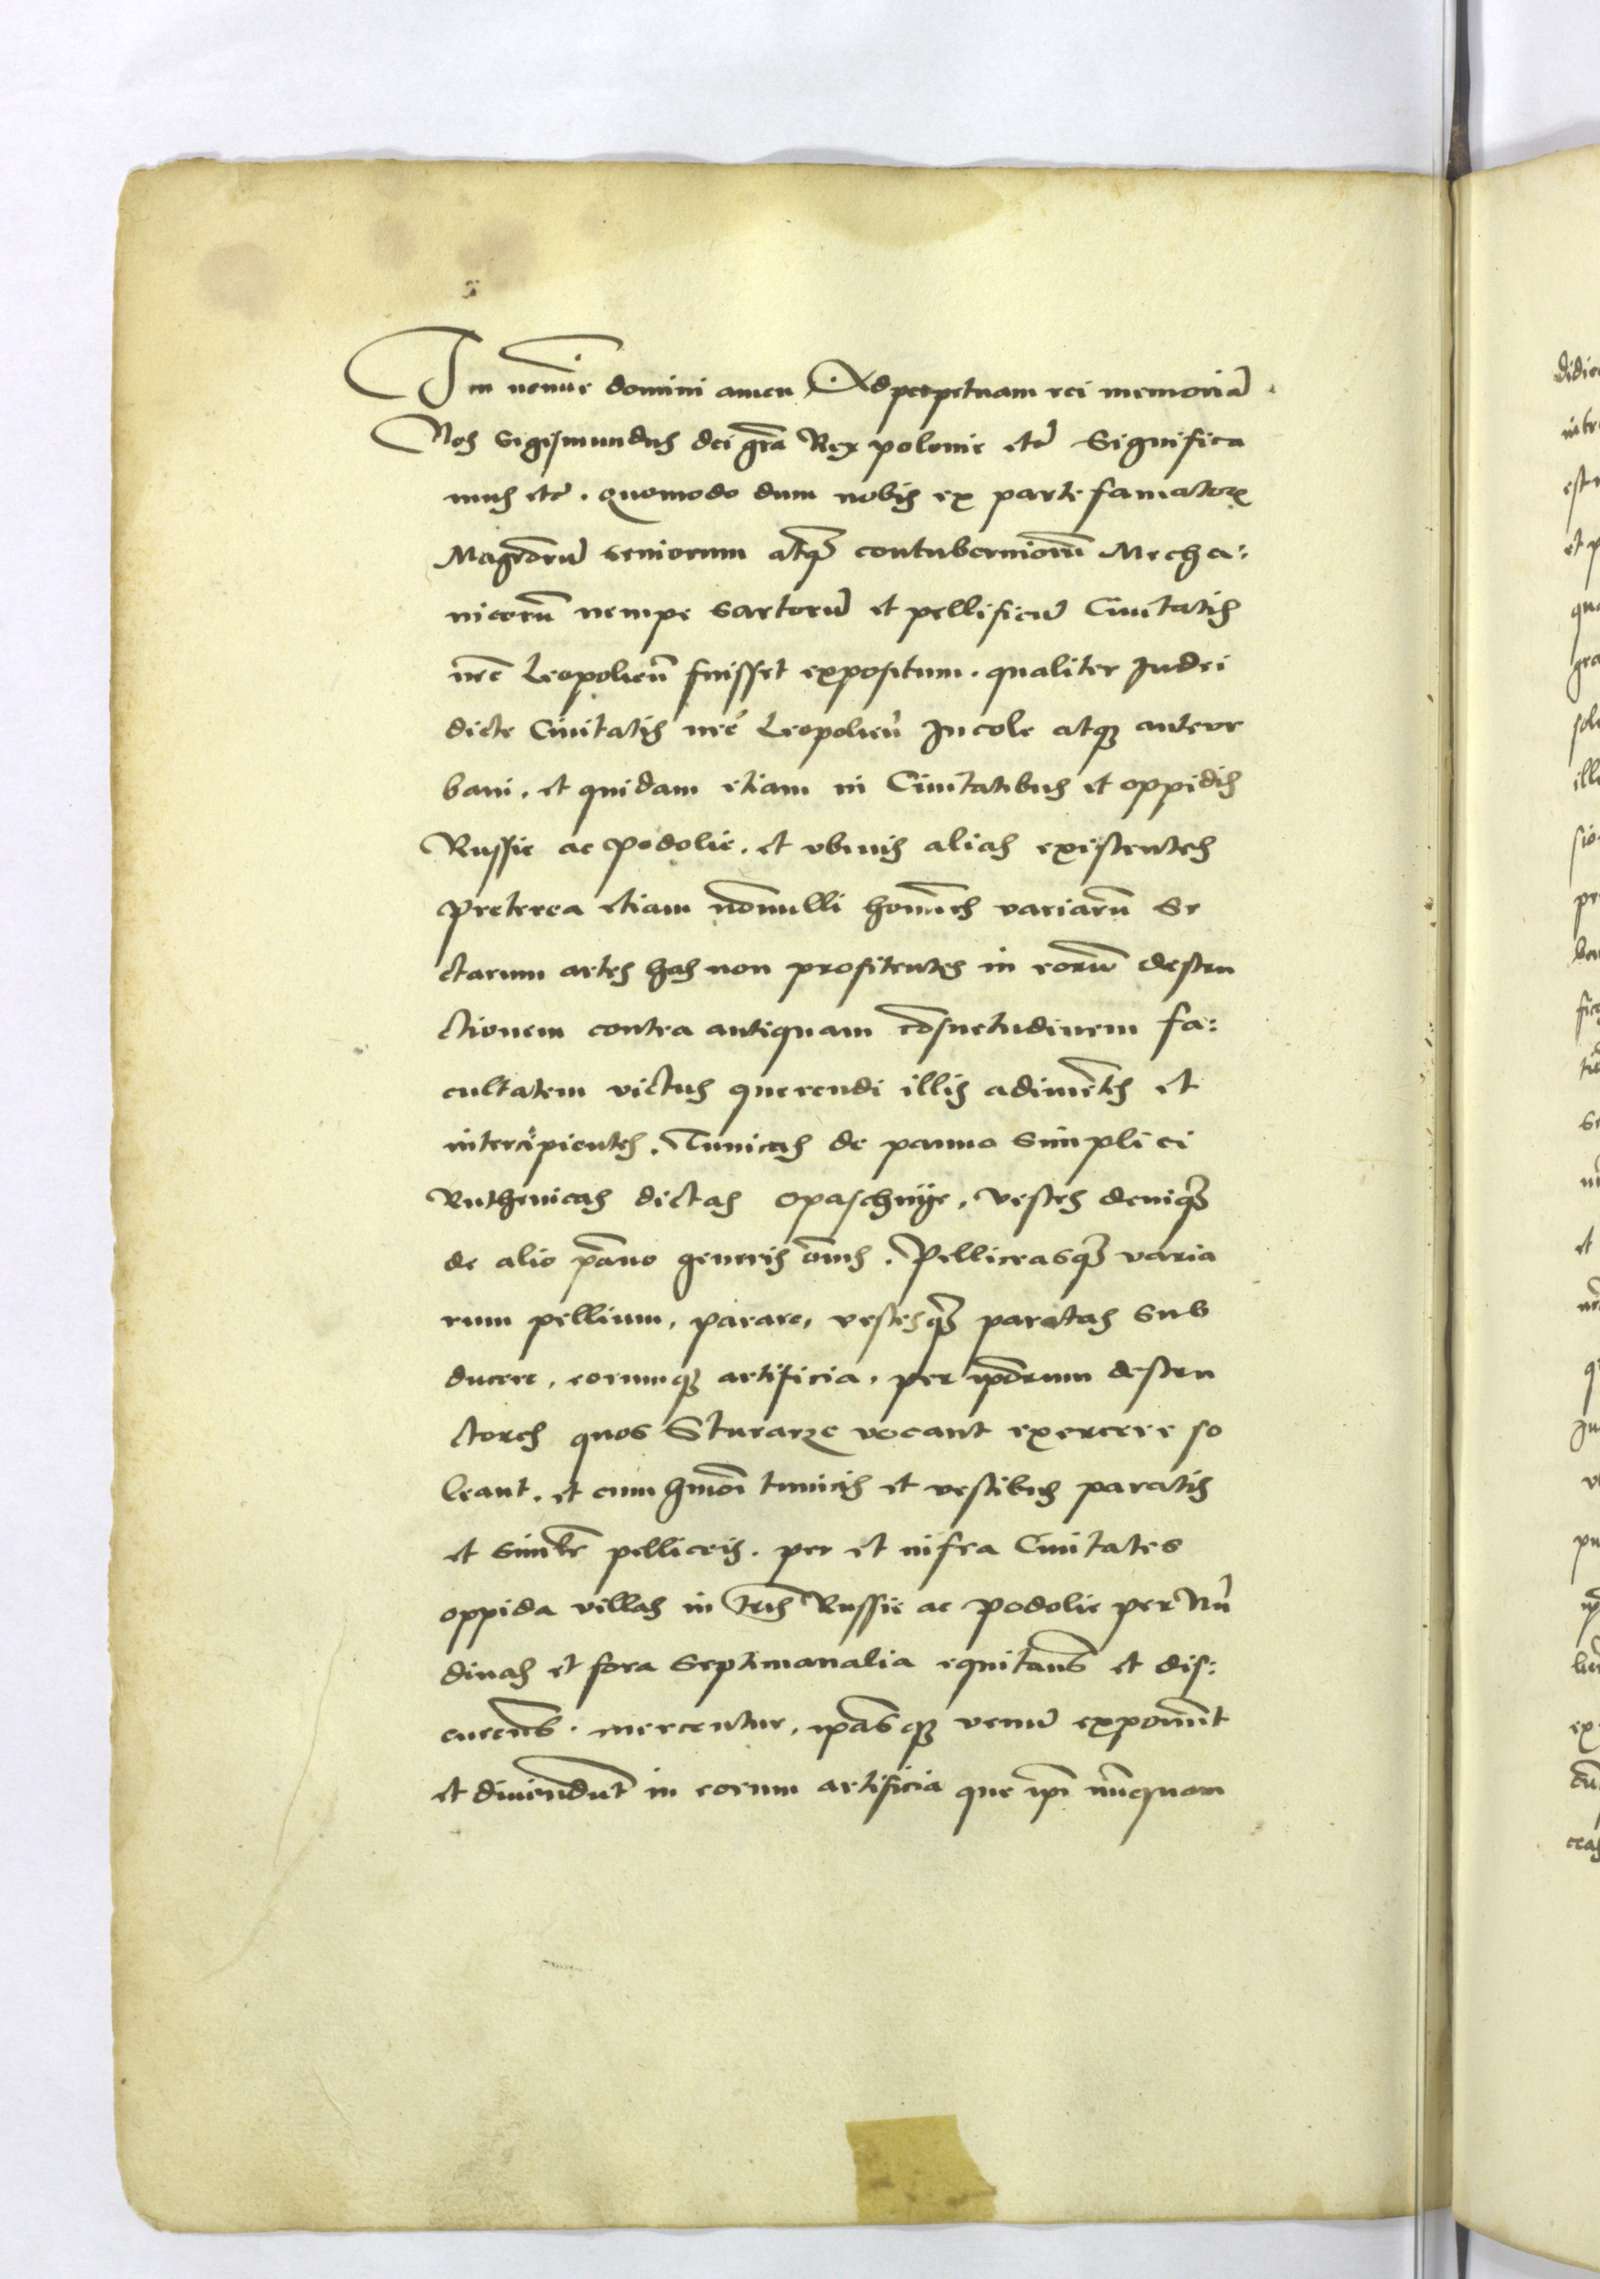 In nomĩe domini amen Ad perpetuam rei memoriã.
Nos Sigismundus dei gr̃a Rex polonie etc̃ Significa
mus etc̃. quomodo dum nobis ex parte famatorꝝ
Magr̃orũ seniorum atqȝ contuberniorũ Mecha:
nicorũ nempe sartorũ et pellificũ Ciuitatis
nr̃e Leopolien̄ fuisset expositum. qualiter Judei
dicte Ciuitatis nr̃e Leopolien̄ Incole atqȝ anteur
bani. et quidam etiam in Ciuitatibus et oppidis
Russie ac Podolie. et vbiuis alias existentes
Preterea etiam nõnulli homĩes variarũ Se
ctarum artes has non profitentes in eorũ destru
ctionem contra antiquam cõsuetudinem fa:
cultatem victus querendi illis adimẽtes et
intercipientes. Tunicas de panno simplici
Ruthenicas dictas opaschnÿe, vestes deniqȝ
de alio pãno generis õnis. Pelliceasqȝ varia
rum pellium, parare, vestesqȝ paratas sub
ducere, eorumqȝ artificia, per ip̃orum destru
ctores quos Sturarze vocant exercere so
leant. et cum hmõi tunicis et vestibus paratis
et simlr̃ pelliceis. per et infra Ciuitates
oppida villas in tr̃is Russie ac Podolie per Nũ
dinas et fora Septimanalia equitañs et dis:
cureñs. mercentur, ip̃asqȝ venũ exponũt
et diuẽndũt in eorum artificia que ip̃i nũquam